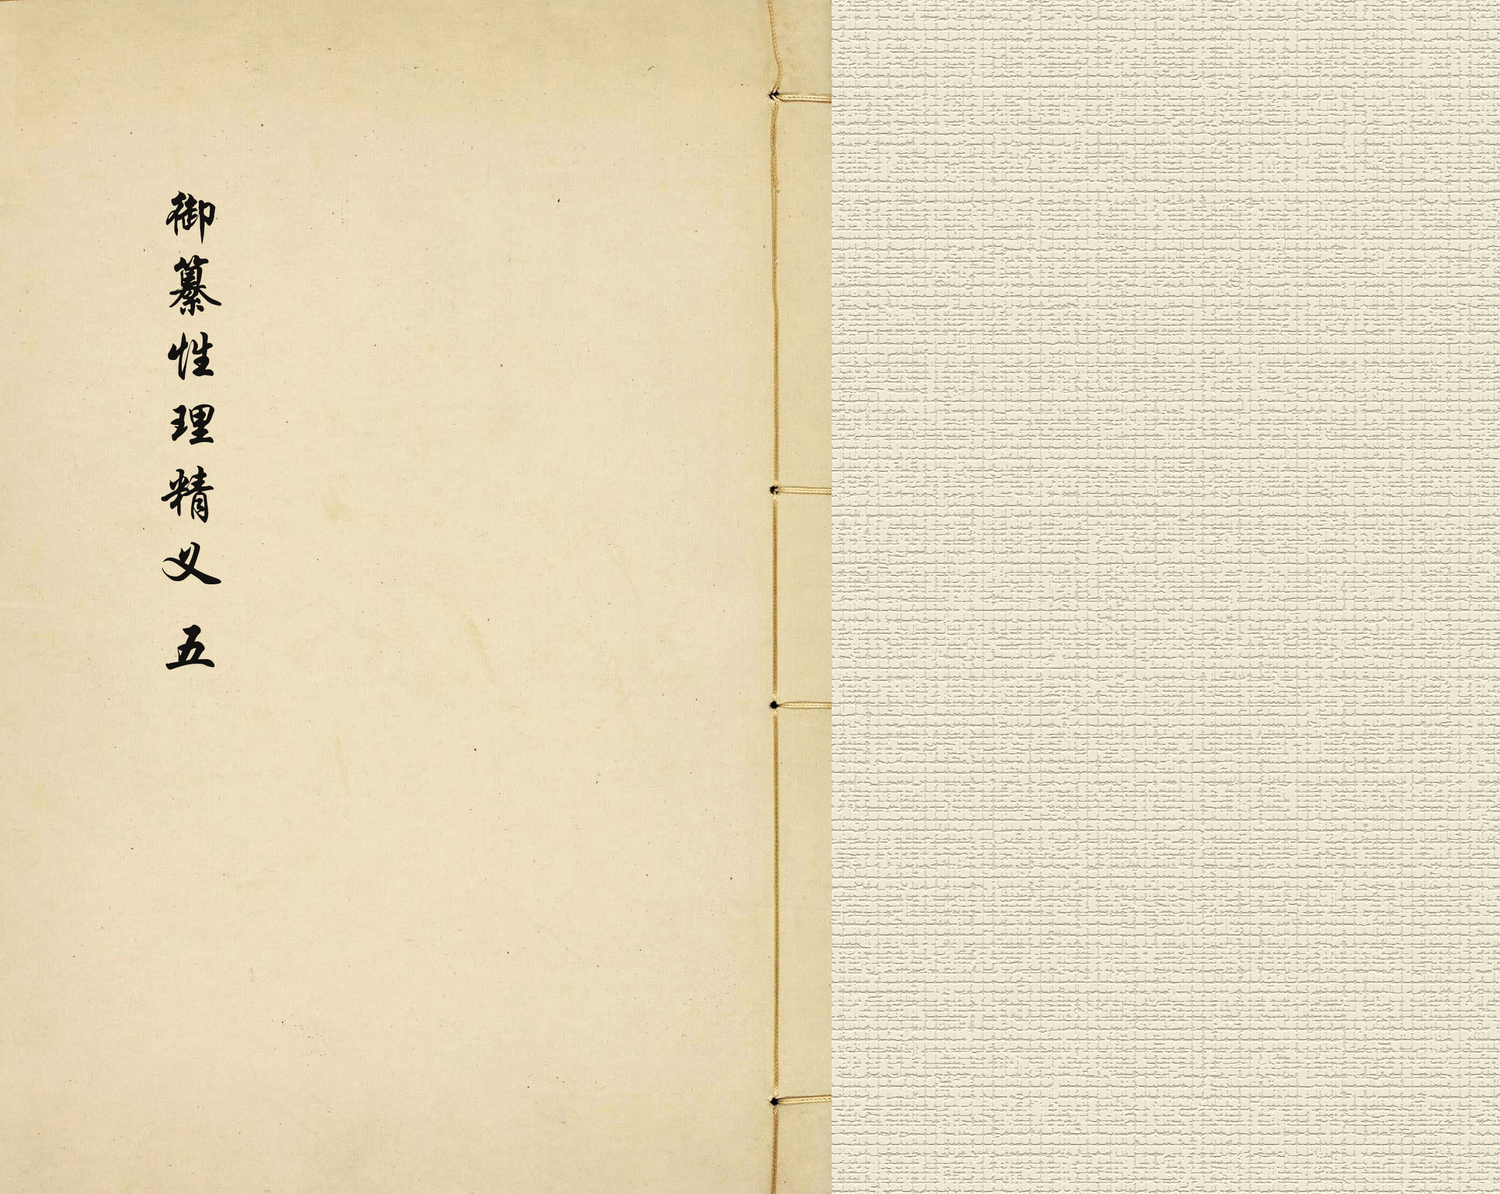 御纂性理精义 五